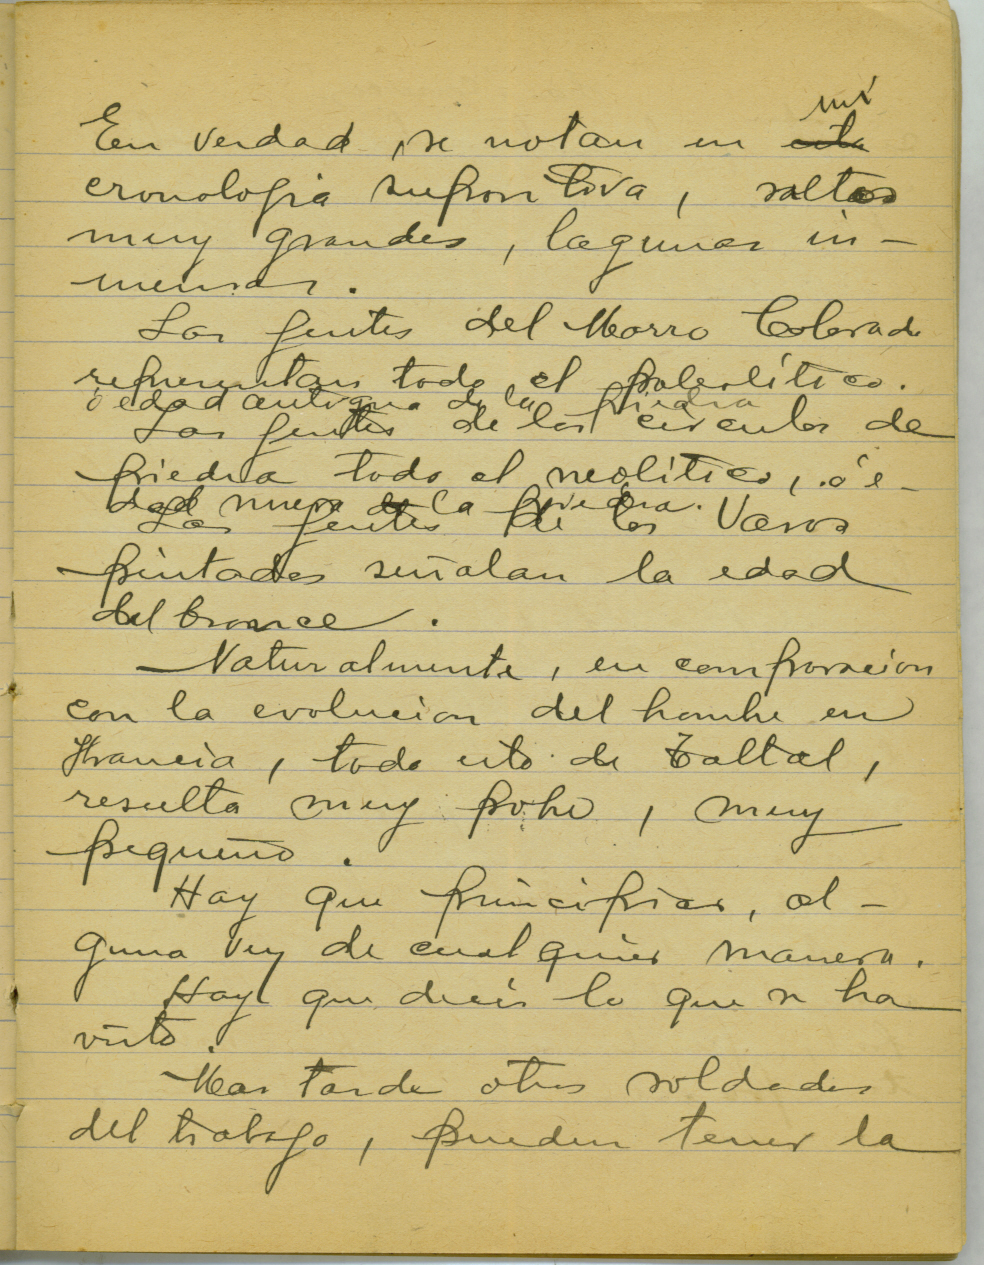 mi
En verdad, se notan en esta
cronologia supositiva, saltos
muy grandes, lagunas in-
mensas.
Las gentes del Morro Colorado
representan todo el paleolítico.
o edad antigua de la piedra
Las gentes de los circulos de
piedra todo el neolítico, o e-
dad nueva de la piedra.
Las gentes de los Vasos
pintados señalan la edad
del bronce.
Naturalmente, en comparacion
con la evolucion del hombre en
Francia, todo esto de Taltal,
resulta muy pobre, muy
pequeño.
Hay que principiar, al-
guna vez de cualquier manera.
Hay que decir lo que se ha
visto.
Mas tarde otros soldados
del trabajo, pueden tener la